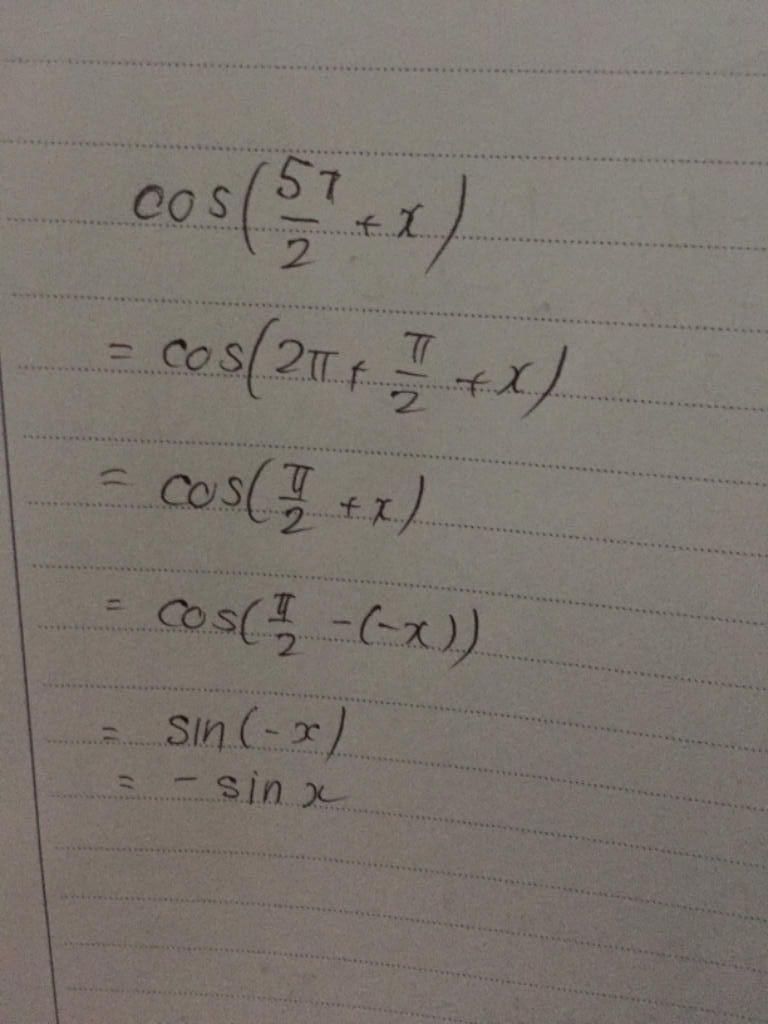 cos(5π/2 + x)
= cos(2π + π/2 + x)
= cos(π/2 + x)
= cos(π/2 - (-x))
= sin(-x)
= - sin x